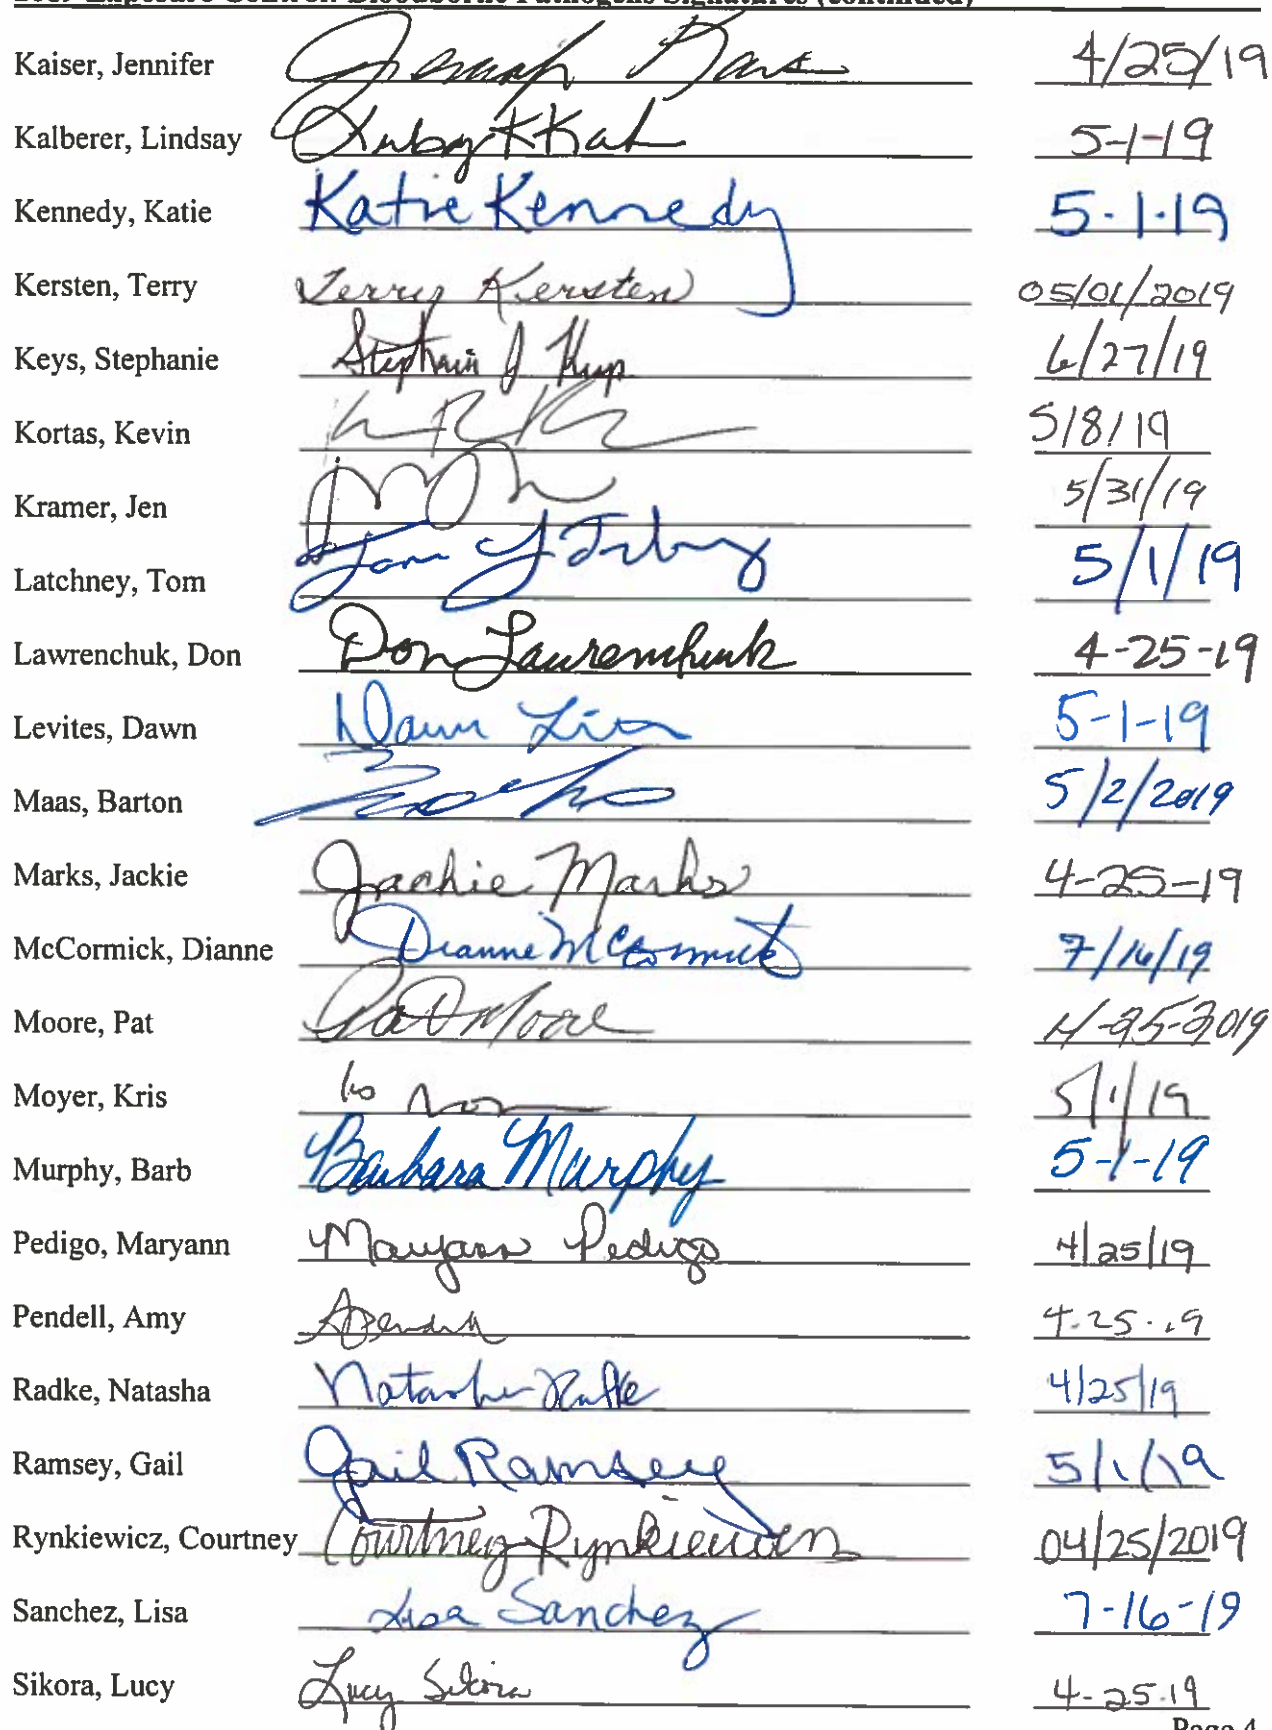 2019 Exposure Control/Bloodborne Pathogens Signatures (continued)
Kaiser, Jennifer 4/25/19
Kalberer, Lindsay 5-1-19
Kennedy, Katie Katie Kennedy 5-1-19
Kersten, Terry Terry Kersten 05/01/2019
Keys, Stephanie 6/27/19
Kortas, Kevin 5/8/19
Kramer, Jen 5/31/19
Latchney, Tom Tom 5/1/19
Lawrenchuk, Don Don Lawrenchuk 4-25-19
Levites, Dawn Dawn 5-1-19
Maas, Barton 5/2/2019
Marks, Jackie Jackie Marks 4-25-19
McCormick, Dianne Dianne McCormick 7/16/19
Moore, Pat Pat Moore 4-25-2019
Moyer, Kris 5/1/19
Murphy, Barb Barbara Murphy 5-1-19
Pedigo, Maryann Maryann Pedigo 4/25/19
Pendell, Amy 4-25-19
Radke, Natasha Natasha Radke 4/25/19
Ramsey, Gail Gail Ramsey 5/1/19
Rynkiewicz, Courtney Courtney Rynkiewicz 04/25/2019
Sanchez, Lisa Lisa Sanchez 7-16-19
Sikora, Lucy Lucy Sikora 4-25-19
Page 4